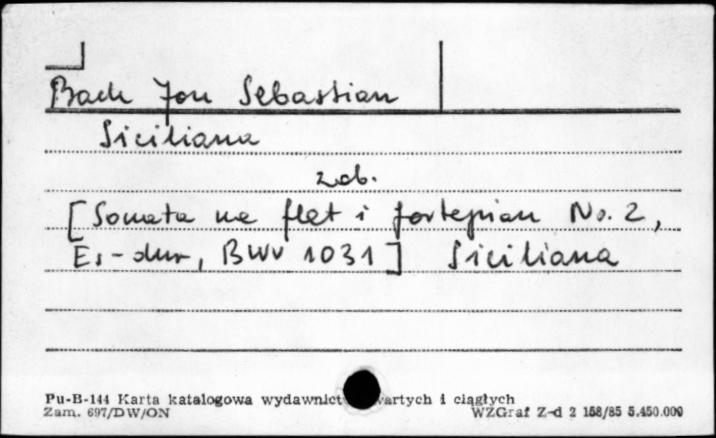 Bach Jan Sebastian
Siciliana
zob.
[Sonata na flet i fortepian No. 2,
Es-dur, BWV 1031] Siciliana
Pu-B-144 Karta katalogowa i ciągłych
Zam. 697/DW/ON WZGraf Z-d 2 158/85 5.450.000